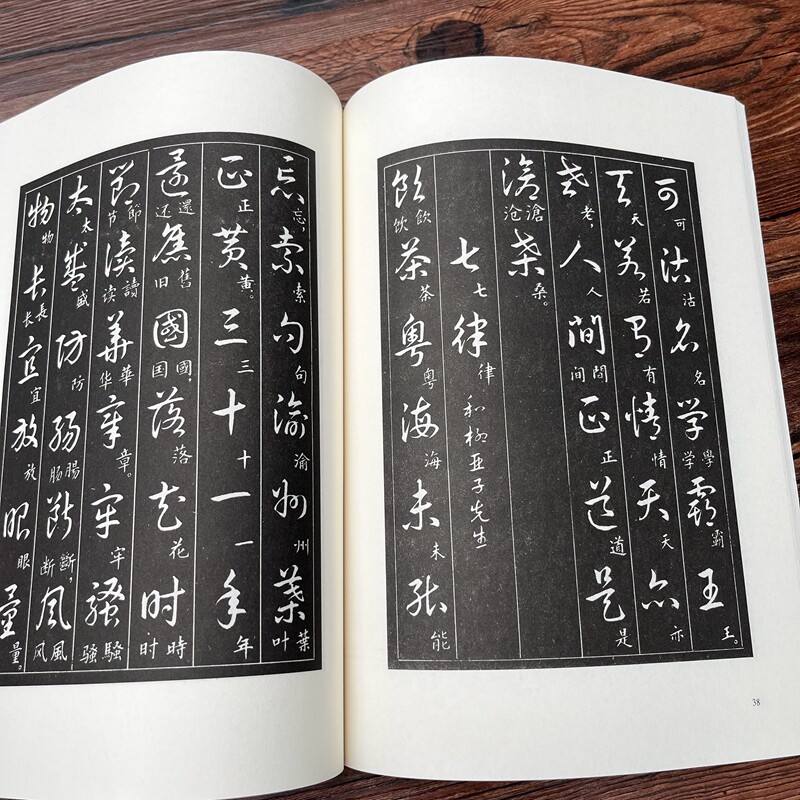 可沽名学霸王
可沽名學学霸王。
天若有情天亦
天若有情天亦
老人間正道是
老,人間间正道是
滄桑
滄沧桑。
七律 和柳亚子先生
七律
飲茶粤海未能
飲饮茶粤海未能
忘索句渝州葉
忘,索句渝州葉叶
正黄三十一年
正黄。三十一年
還舊國落花时
還还舊旧國,国落花時时
節讀華章牢騷
節节讀读華华章。牢騷骚
太盛防腸斷風
太盛防腸肠斷,断風风
物長宜放眼量
物長长宜放眼量。
38